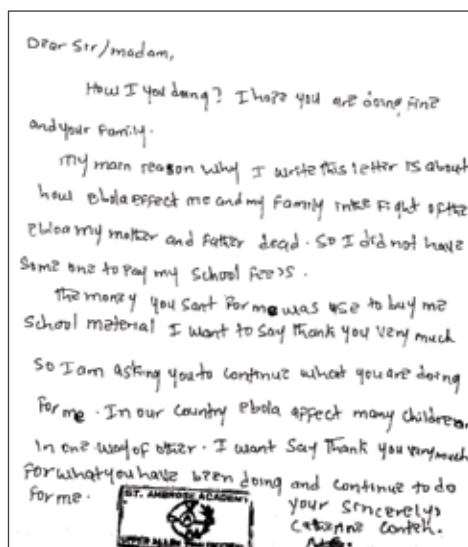 Dear Sir/madam,
How I you doing? I hope you are doing fine
and your family.
my main reason why I write this letter is about
how ebola effect me and my family inthe Fight of the
ebloa my mother and Father dead. So I did not have
Some one to Pay my School fees.
the money you sant for me was use to buy me
School material I want to Say thank you very much
So I am asking you to continue what you are doing
for me. In our country ebola affect many children
in one way of other. I want Say Thank you very much
For what you have been doing and continue to do
for me.
ST. AMBROSE ACADEMY
UPPER ALLEN
your Sincerely
Caterine Conteh.